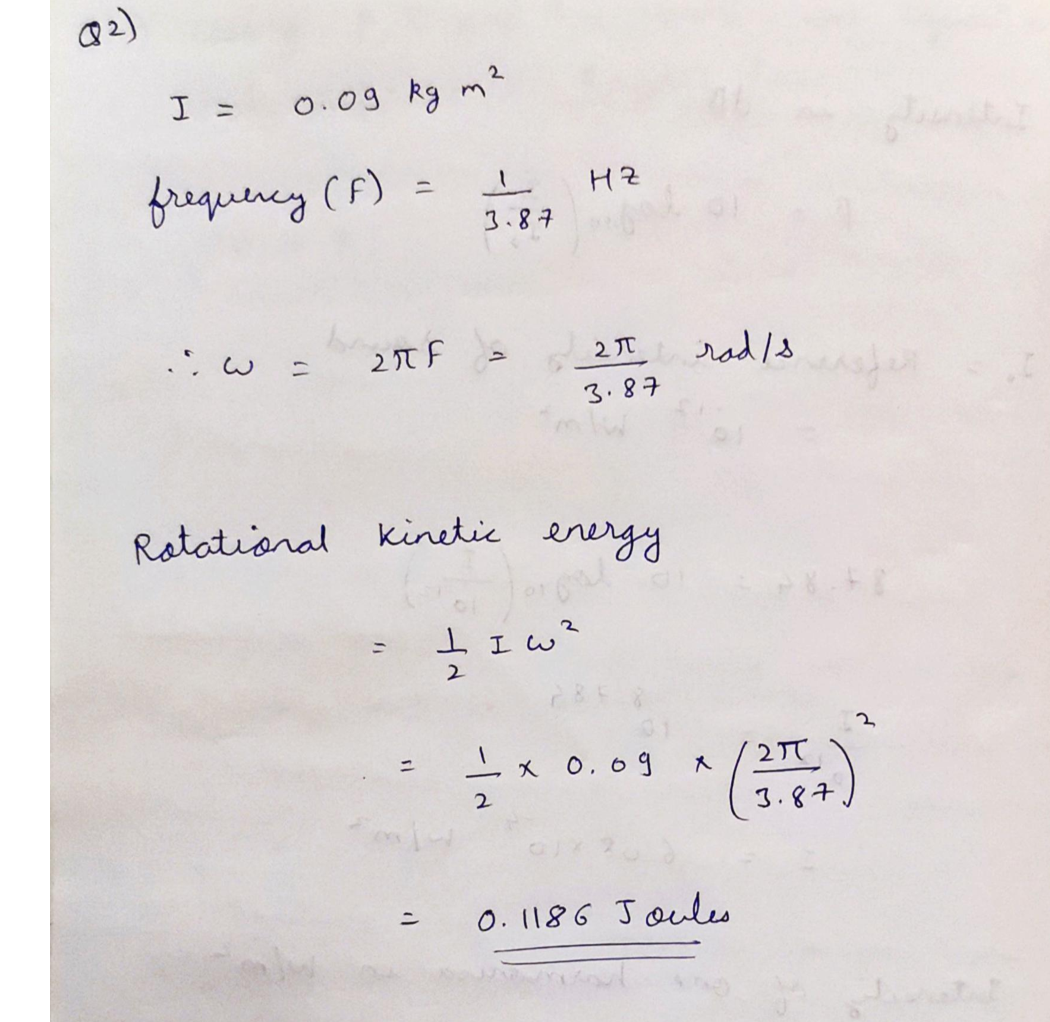 Q2)
I = 0.09 kg m²
frequency (F) = 1/3.87 HZ
∴ ω = 2πF = 2π/3.87 rad/s
Rotational kinetic energy
= 1/2 I ω²
= 1/2 × 0.09 × (2π/3.87)²
= 0.1186 Joules